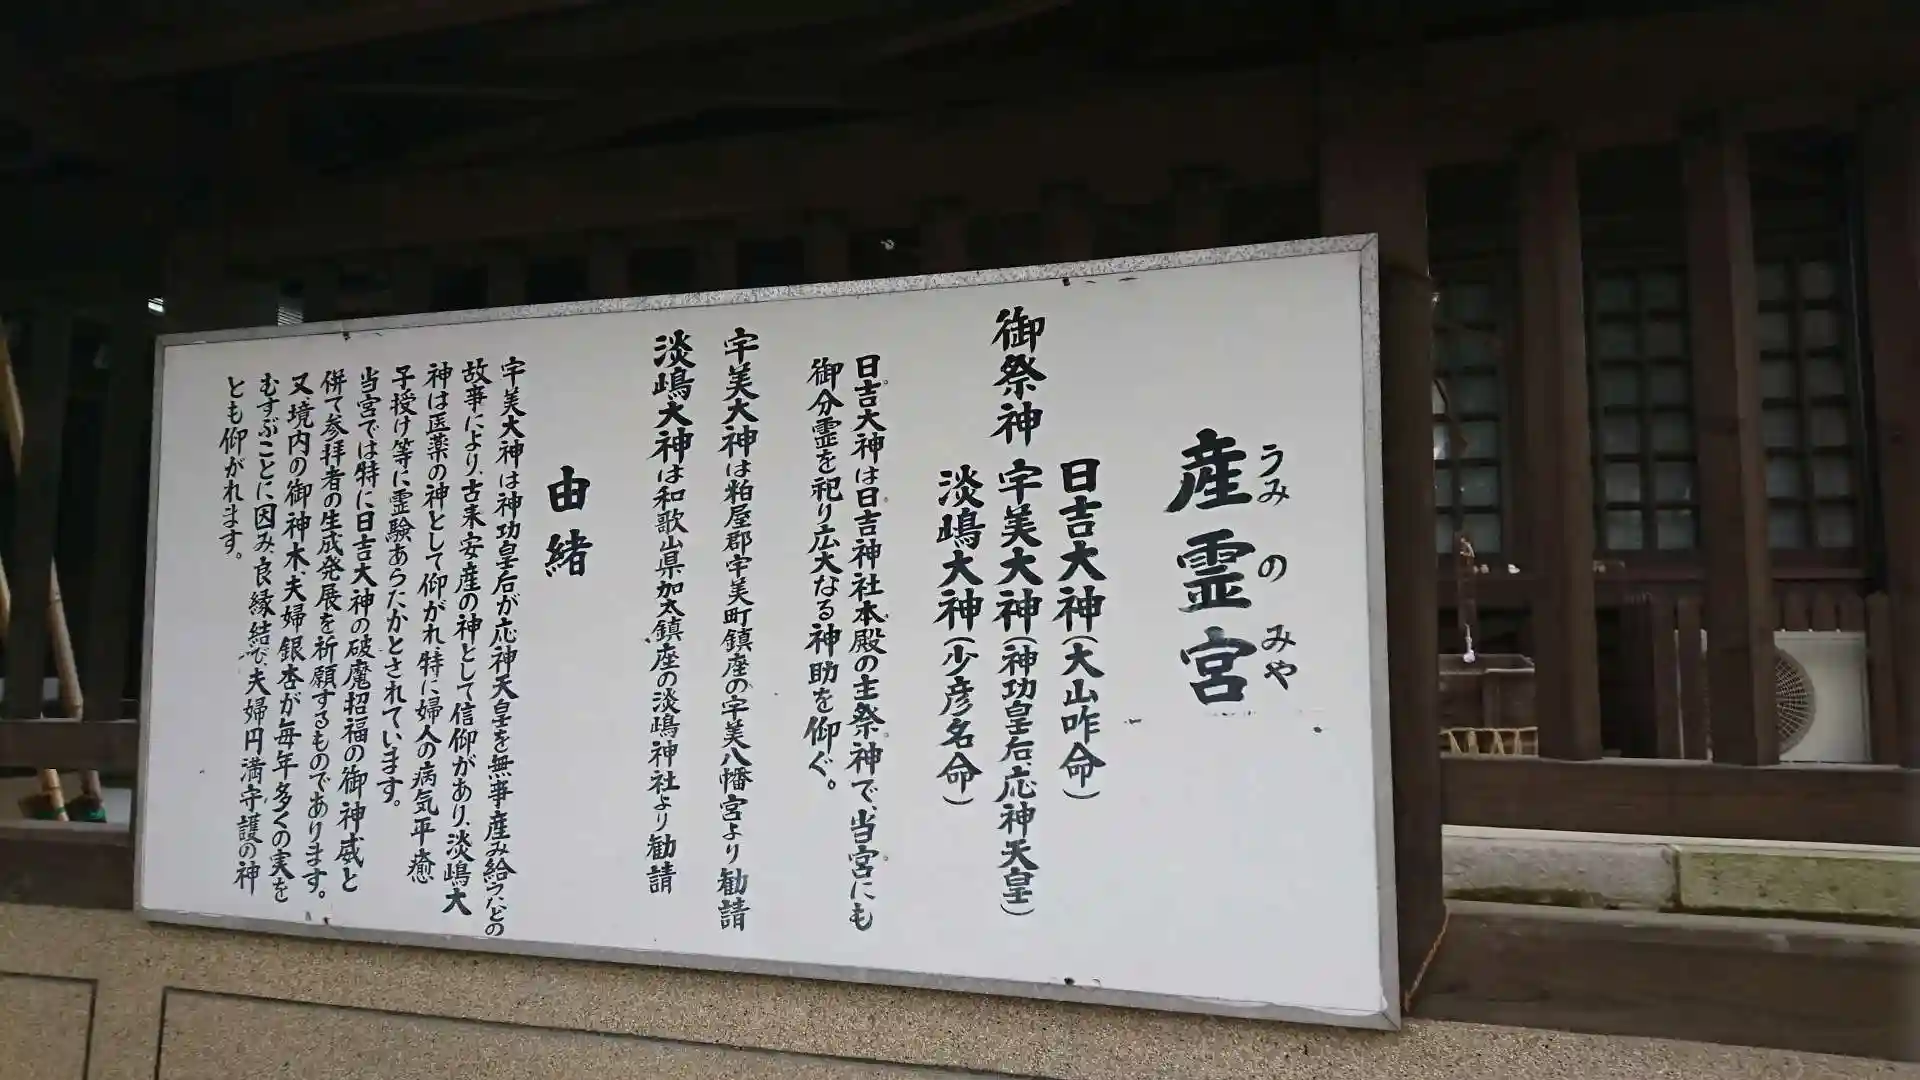 産霊宮
うみのみや
御祭神
日吉大神(大山咋命)
宇美大神(神功皇后、応神天皇)
淡嶋大神(少彦名命)
日吉大神は日吉神社本殿の主祭神で、当宮にも
御分霊を祀り広大なる神助を仰ぐ。
宇美大神は粕屋郡宇美町鎮座の宇美八幡宮より勧請
淡嶋大神は和歌山県加太鎮座の淡嶋神社より勧請
由緒
宇美大神は神功皇后が応神天皇を無事産み給うなどの
故事により、古来安産の神として信仰があり、淡嶋大
神は医薬の神として仰がれ、特に婦人の病気平癒
子授け等に霊験あらたかとされています。
当宮では特に日吉大神の破魔招福の御神威と
併て参拝者の生成発展を祈願するものであります。
又境内の御神木、夫婦銀杏が毎年多くの実を
むすぶことに因み、良縁結で、夫婦円満守護の神
とも仰がれます。